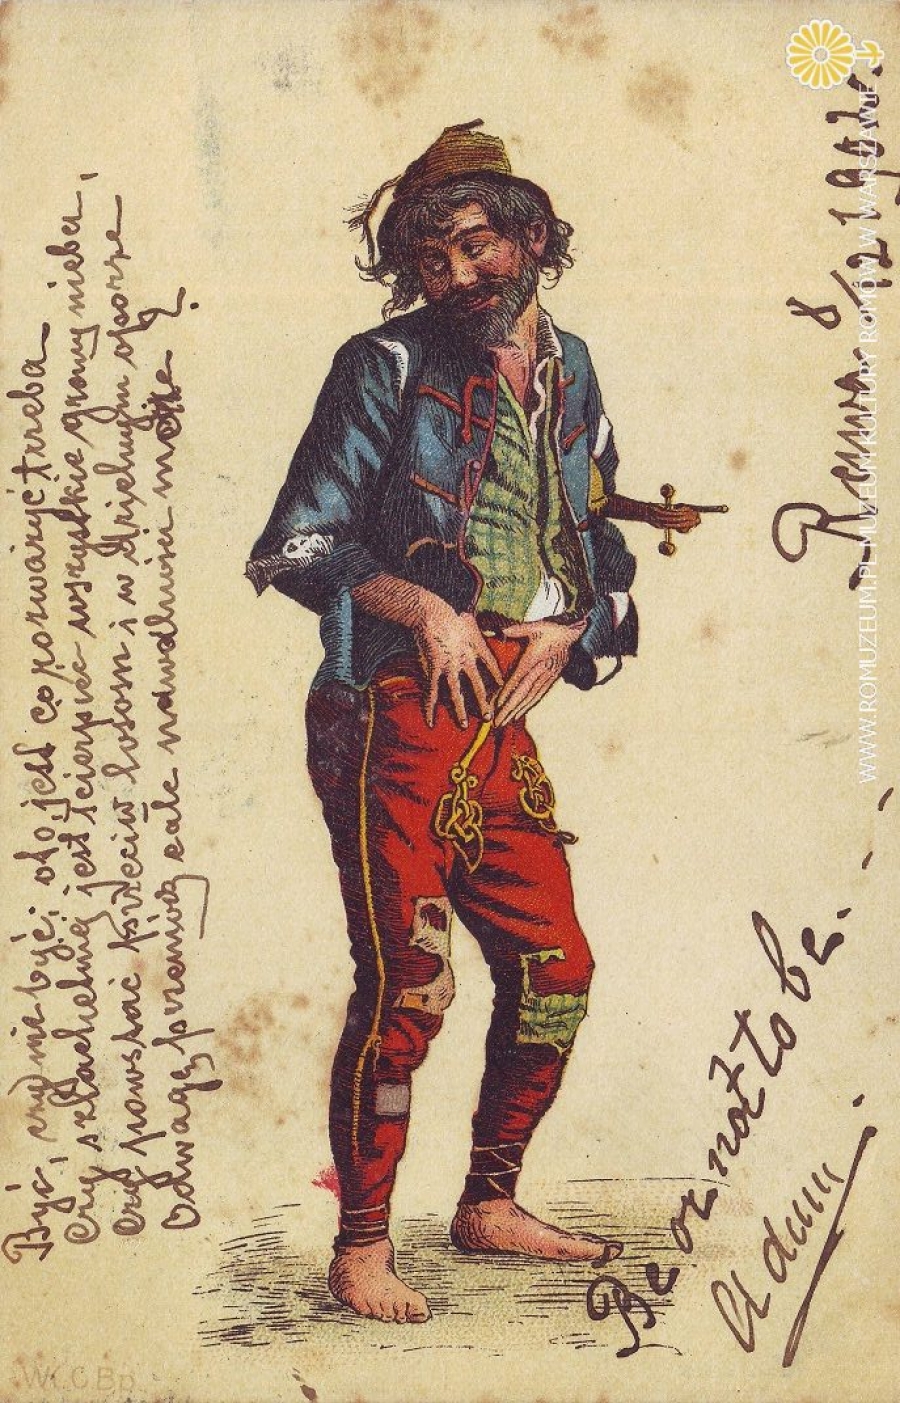 Być, czy nie być; oto jest co poważyć trzeba
Czy szlachetniej jest ścierpieć wszystkie gromy nieba,
czy powstać przeciw losom i w dzielnym oporze
Odwagą przemódz całe nawałnisu może?
Rawa 8/12 1902.
Be or not to be.
Adam
WWW.ROMUZEUM.PL MUZEUM KULTURY ROMÓW W WARSZAWIE
W.C.Bp.